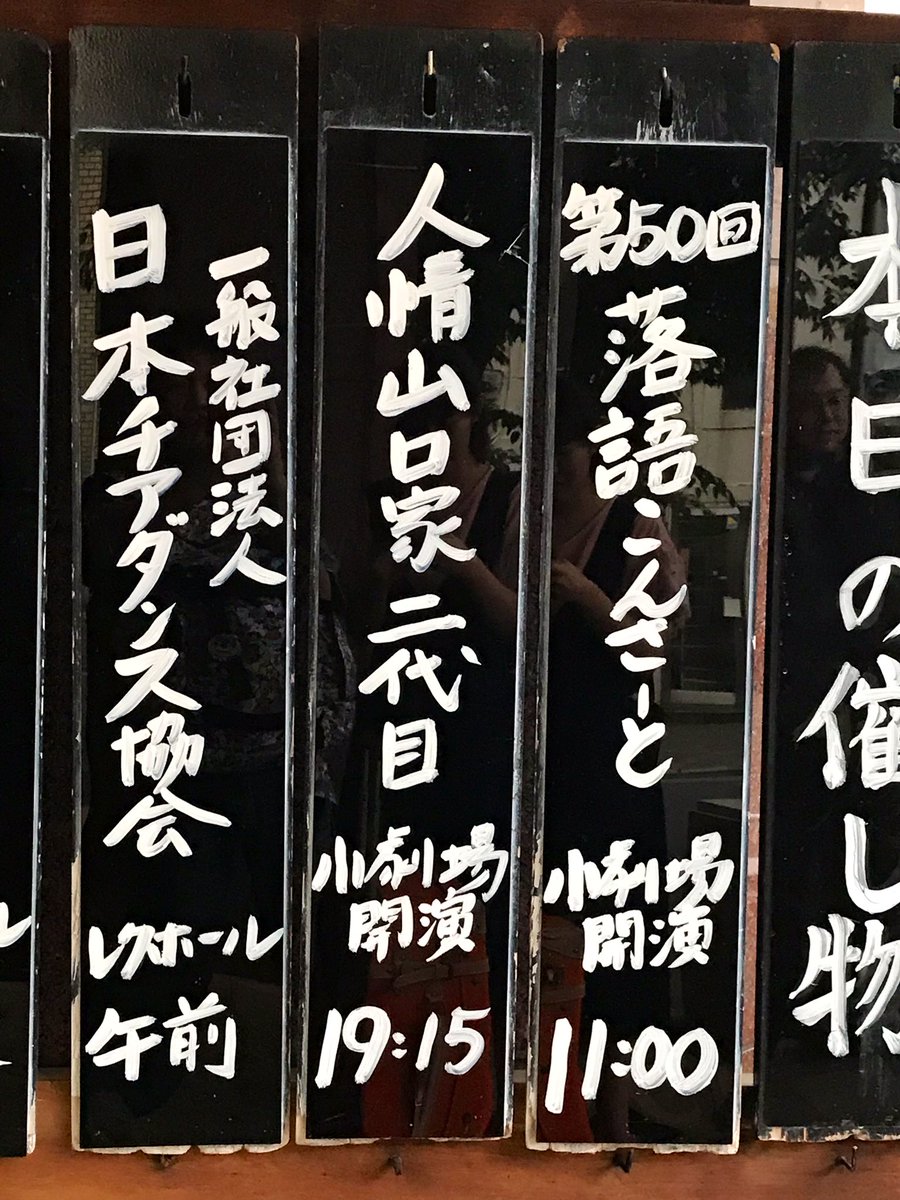 本日の催し物
第50回
落語こんさーと
小劇場
開演
11:00
人情山口家二代目
小劇場
開演
19:15
一般社団法人
日本チアダンス協会
レクホール
午前